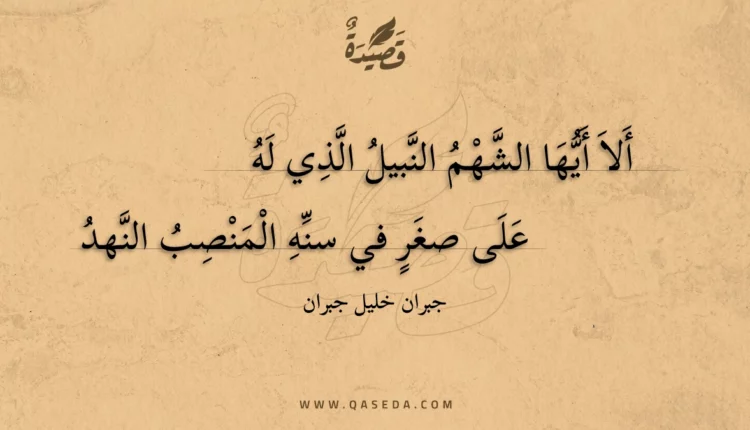 قَصِيدَةٌ
أَلاَ أَيُّهَا الشَّهْمُ النَّبيلُ الَّذِي لَهُ
عَلَى صغَرٍ في سنِّهِ الْمَنْصِبُ النَّهدُ
جبران خليل جبران
WWW.QASEDA.COM